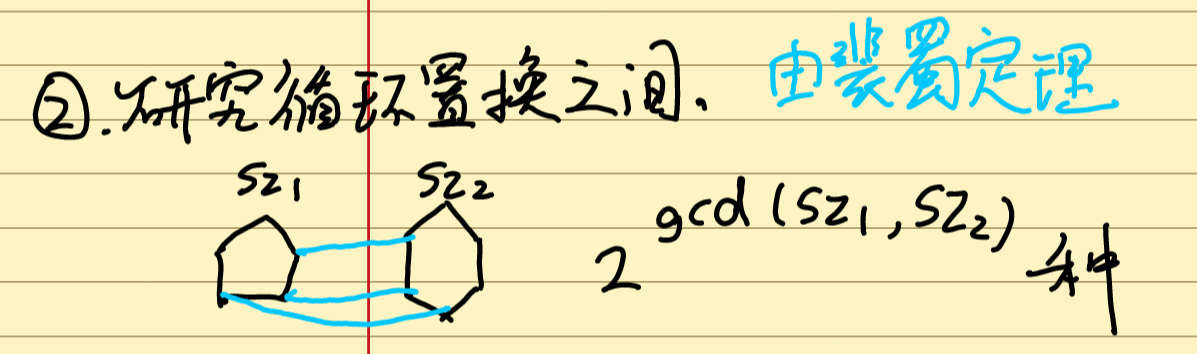 ②.研究循环置换之间. 由裴蜀定理
sz₁ sz₂
2^gcd(sz₁,sz₂) 种